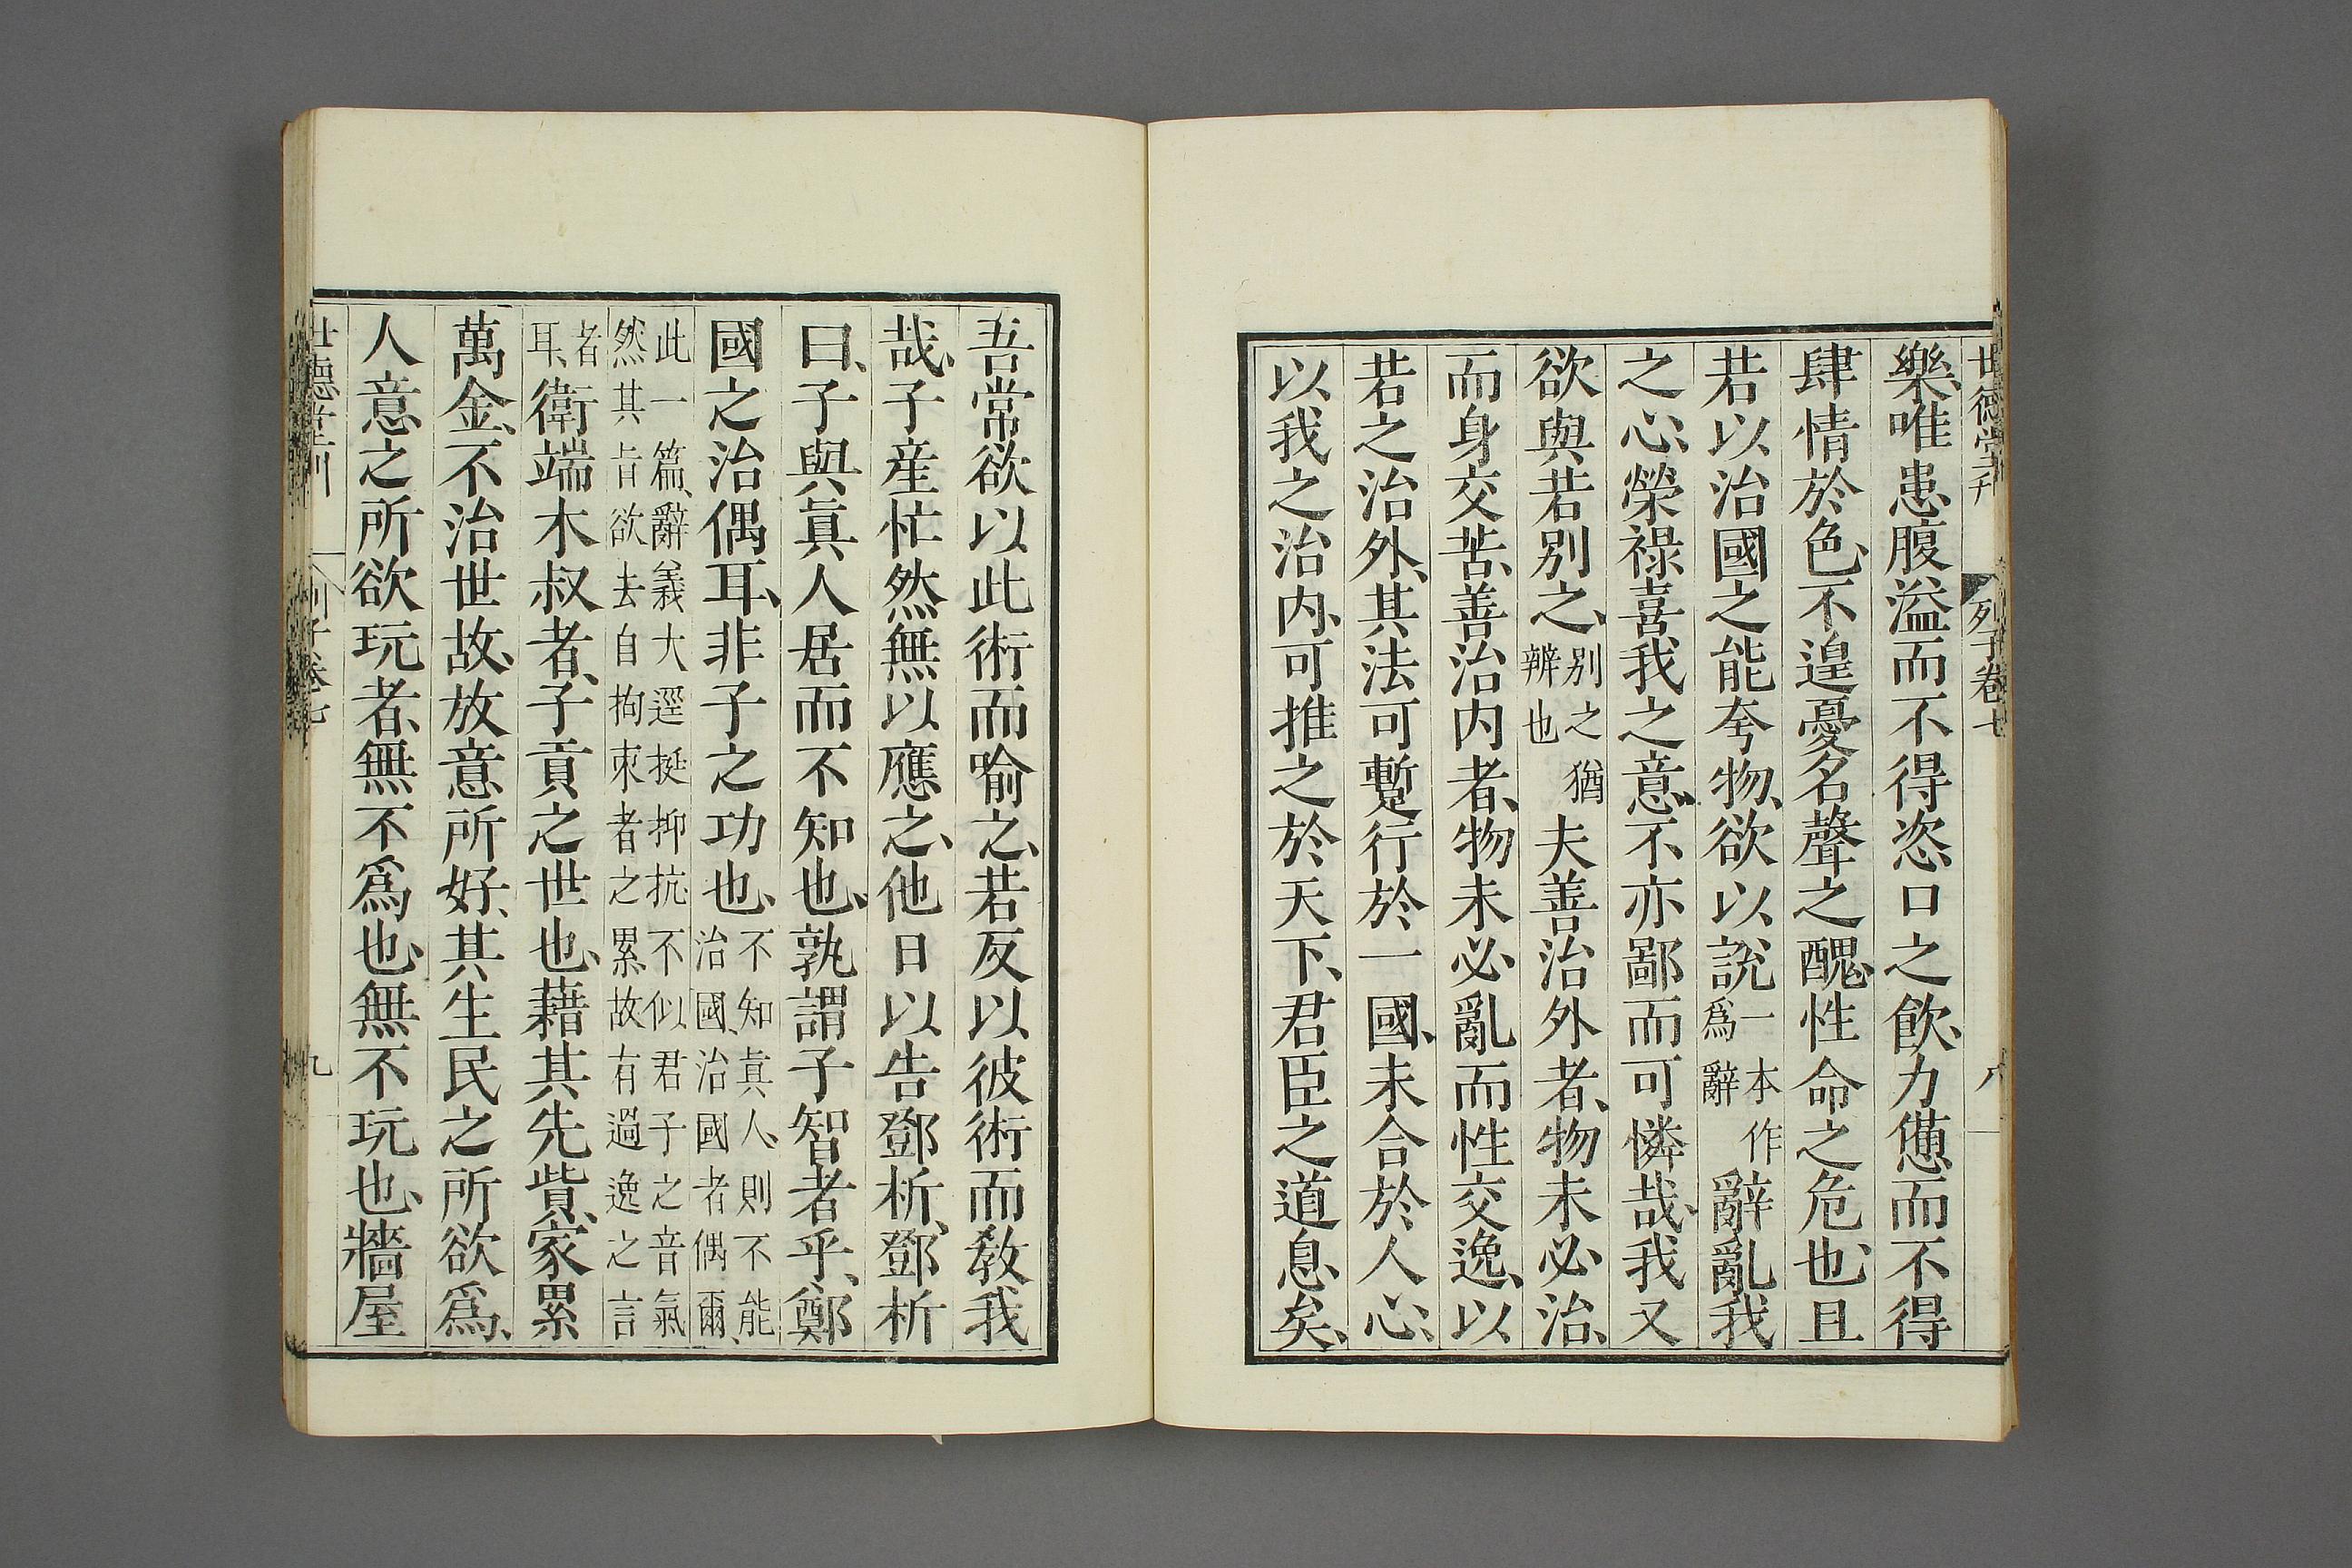 世德堂刊 列子卷七 八
樂、唯患腹溢而不得恣口之飲、力憊而不得
肆情於色、不遑憂名聲之醜、性命之危也、且
若以治國之能夸物、欲以說一本作爲辭辭亂我
之心、榮祿喜我之意、不亦鄙而可憐哉、我又
欲與若別之、別之猶辨也夫善治外者、物未必治、
而身交苦、善治内者、物未必亂而性交逸、以
若之治外、其法可蹔行於一國、未合於人心、
以我之治内、可推之於天下、君臣之道息矣、
吾常欲以此術而喻之、若反以彼術而敎我
哉、子産忙然無以應之、他日以告鄧析、鄧析
曰、子與眞人居而不知也、孰謂子智者乎、鄭
國之治偶耳、非子之功也、不知眞人、則不能治國、治國者偶爾、
此一篇、辭義大逕挺抑抗、不似君子之音氣
然其旨欲去自拘束者之累、故有過逸之言
者耳、衛端木叔者、子貢之世也、藉其先貲、家累
萬金、不治世故、放意所好、其生民之所欲爲、
人意之所欲玩者、無不爲也、無不玩也、牆屋
世德堂刊 列子卷七 九